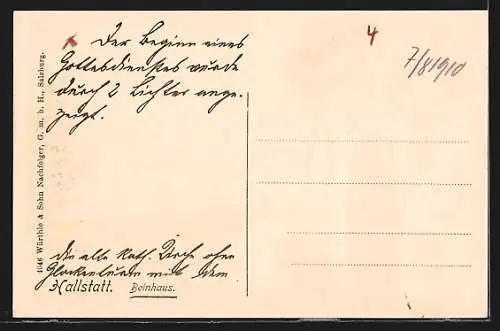 x Der Beginn eines
Gottesdienstes wurde
durch 2 Lichter ange-
zeigt.
4
7/8 1910
4646 Würthle & Sohn Nachfolger, G. m. b. H., Salzburg.
die alte kath. Kirche ohne
Glockenturm mit dem
Hallstatt. Beinhaus.